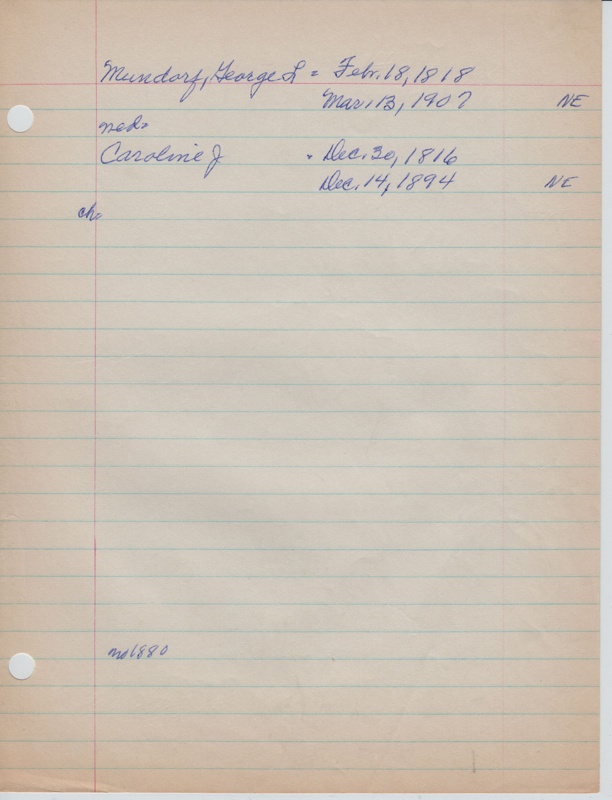 Mundorf, George L = Feb. 18, 1818
Mar. 13, 1907 NE
med=
Caroline J = Dec. 30, 1816
Dec. 14, 1894 NE
ch=
no 1880